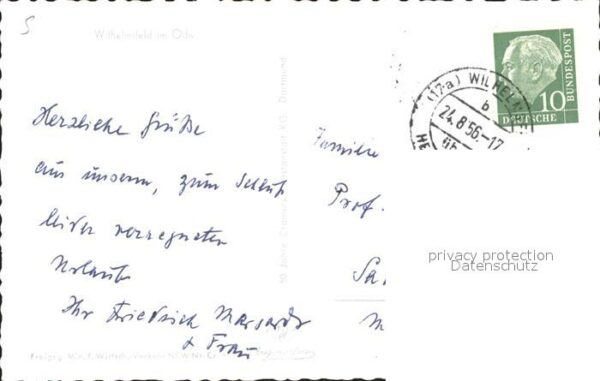 5
Wilhelmsfeld im Odw.
Herzliche Grüße
aus unserm, zum Schluß
leider verregneten
Urlaub
Ihr Friedrich
& Frau
Familie
Prof.
(17a) WILHELM
b
24.8.56-17
10
DEUTSCHE
BUNDESPOST
privacy protection
Datenschutz